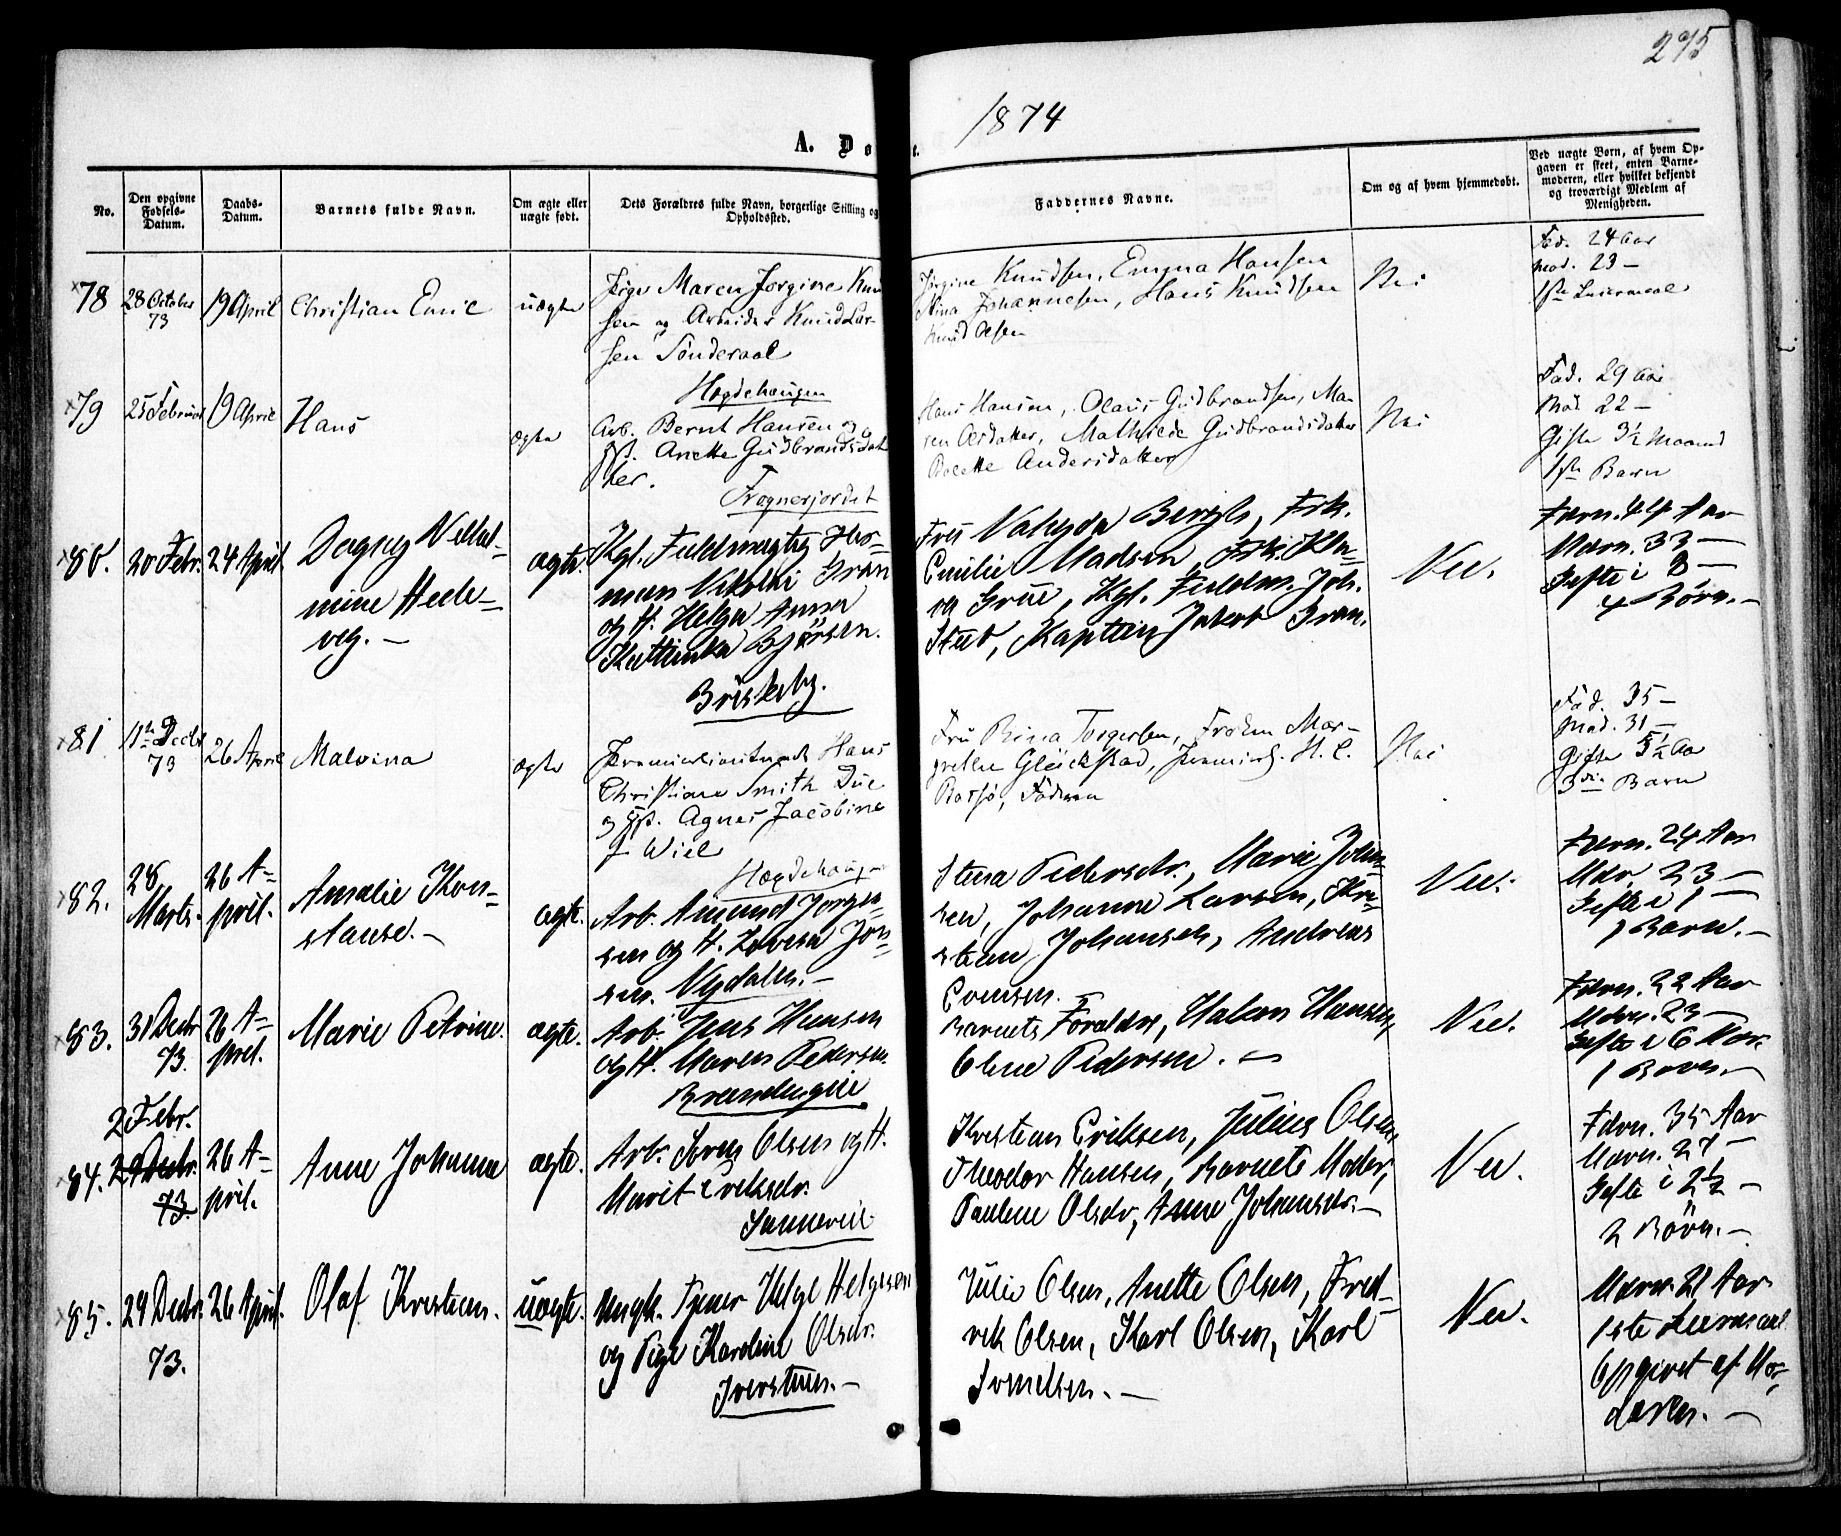 295
1874
A. Dø
No.
Den opgivne Fødsels-Datum.
Daabs-Datum.
Barnets fulde Navn.
Om ægte eller uægte født.
Dets Forældres fulde Navn, borgerlige Stilling og Opholdssted.
Faddernes Navne.
Om og af hvem hjemmedøbt.
Ved uægte Børn, af hvem Opgaven er skeet, enten Barnemoderen, eller hvilket bekjendt og troværdigt Medlem af Menigheden.
78
28 October
73
19 April
Christian Emil
uægte
Pige Maren Jørgine Knud
sen og Arbeider Knud Lar-
sen Sønderaal
Hægdehaugen
Jørgine Knudsen, Emma Hansen
Mina Johannesen, Hans Knudsen
Knud Olsen
Nei
Fad. 24 Aar
Mod. 23 —
1ste Leiermaal
79
25 Februar
19 April
Hans
ægte
Arb. Bernt Hansen og
Anette Gudbrandsdat
ter.
Frognerjordet
Hans Hansen, Olaus Gudbrandsen, Ma
ren Olsdatter, Mathilde Gudbrandsdatter
Andersdatter
Nei
Fad. 29 Aar
Mod. 22 —
Gifte 3½ Maaned
1ste Barn
80.
20 Febr.
24 April.
Dagny Vilhel-
mine Hede-
vig. —
ægte.
Kgl. Fuldmægtig Her-
man Nikolai Gran
og H. Helga Anna
Kathinka Bjørsen.
Briskeby.
Fru Bergh, Frk.
Emilie Madsen, Frk. Kla-
ra Grüe, Kgl. Fuldm. Joh.
Stub, Kaptein Jakob Gran.
Nei.
Færn. 44 Aar
Mdrn. 33 —
Gifte i 8 —
4 Børn. —
81
11te Decbr
73
26 April
Malvina
ægte
Premierlieutenant Hans
Christian Smith Due
og Agnes Jacobine
f Wiel
Hægdehaug
Fru Rina Torgersen, Frøken Mar-
grethe Glückstad, Premierl. H. C.
Faderen
Nei
Fad. 35 —
Mod. 31 —
Gifte 5½ Aar
3die Barn
82.
28
Marts.
26 A-
pril.
Amalie Kon-
stanse. —
ægte.
Arb. Amund Jørgen-
sen og H. Lovisa Jon-
sen. Nydalen. —
Stina Pedersdr., Marie Johan-
sen, Johanne Larsen, Kri-
stian Johansen, Andreas
Evensen. —
Nei.
Færn. 24 Aar
Mdr. 23 —
Gifte i 1 —
1 Barn. —
83.
31 Decbr
73.
26 A-
pril.
Marie Petrine.
ægte.
Arb. Jens Hansen
og H. Maren Pedersen.
Brændengüe
Barnets Forældre, Hansen,
Olene Pedersen. —
Nei.
Færn. 22 Aar
Mdrn. 23 —
Gifte i 6 Mdr.
1 Barn. —
2 Febr.
84.
29 Decbr.
73.
26 A-
pril.
Anne Johanne
ægte.
Arb. Sven Olsen og H.
Marit Eriksdr.
Sanneveie
Kristian Eriksen, Julius Olsen,
Theodor Hansen, Barnets Moder,
Pauline Olsdr, Anne Johansdr. —
Nei.
Fdrn. 35 Aar
Mdrn. 27 —
Gifte i 2½ —
2 Børn. —
85.
29 Decbr.
73.
26 April.
Olaf Kristian.
uægte.
Ungk. Tjener Helge Helgesen
og Pige Karoline Olsdr.
Iverstuen. —
Julie Olsen, Anette Olsen, Fred-
rik Olsen, Karl Olsen, Karl
Svendsen. —
Nei.
Mdrn. 21 Aar
1ste Leiermaal.
Opgivet af Mo-
deren. —